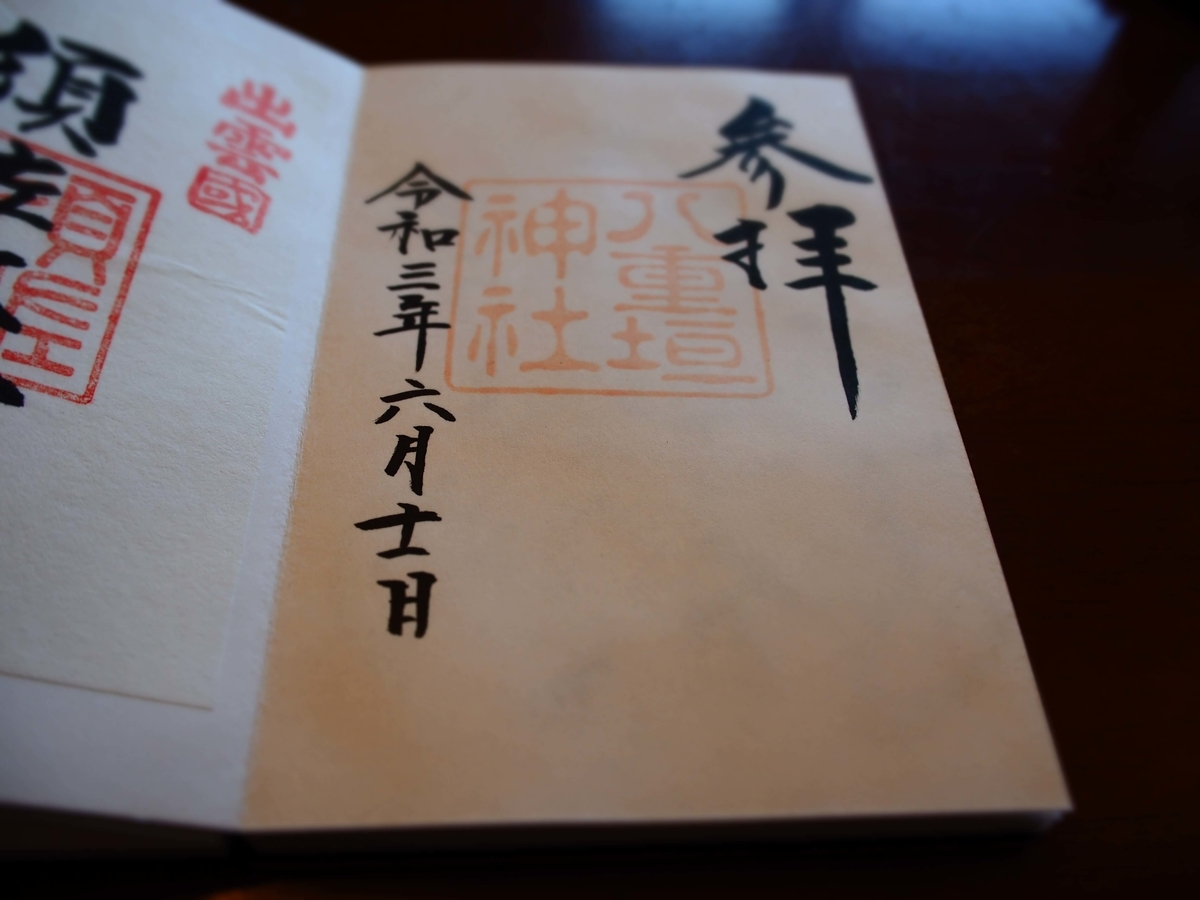 参拝
八重垣
神社
令和三年六月十一日
出雲國
須佐
須佐